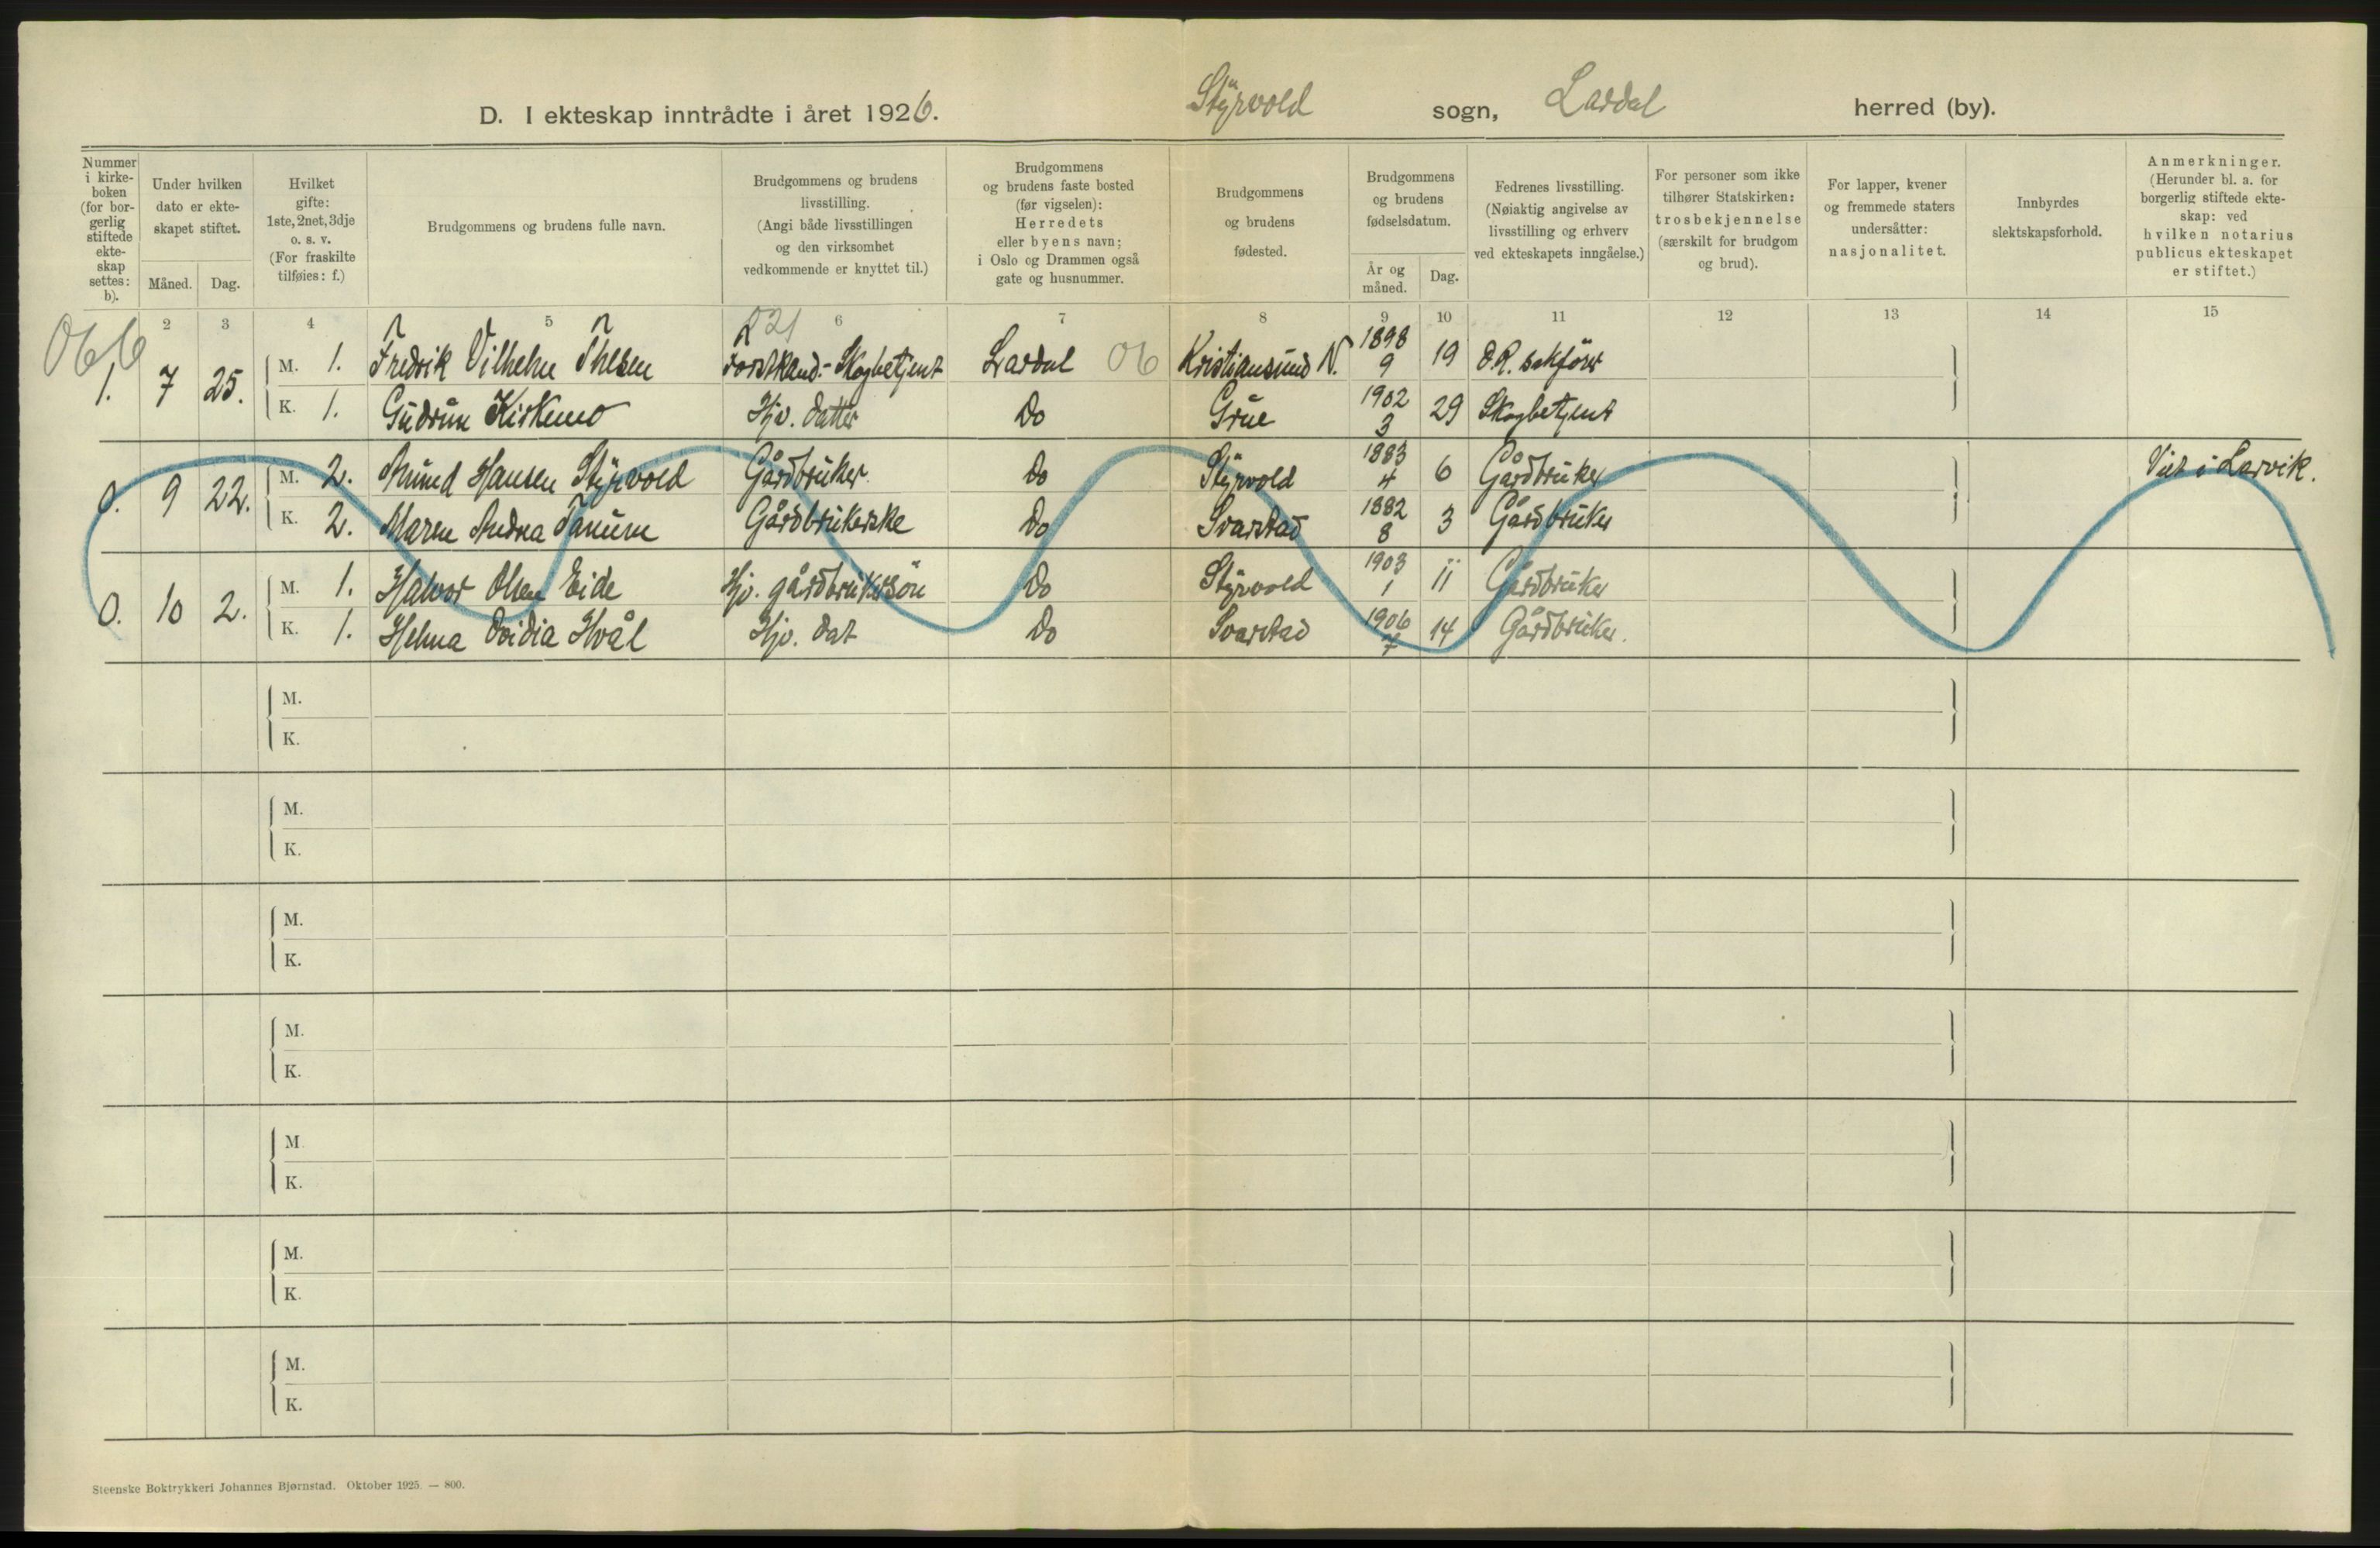 D. I ekteskap inntrådte i året 1926. Styrvold sogn, Lardal herred (by).
Nummer i kirke-boken (for bor-gerlig stiftede ekte-skap settes: b).
Under hvilken dato er ekte-skapet stiftet.
Måned. Dag.
Hvilket gifte: 1ste, 2net, 3dje o. s. v. (For fraskilte tilføies: f.)
Brudgommens og brudens fulle navn.
Brudgommens og brudens livsstilling. (Angi både livsstillingen og den virksomhet vedkommende er knyttet til.)
Brudgommens og brudens faste bosted (før vigselen): Herredets eller byens navn; i Oslo og Drammen også gate og husnummer.
Brudgommens og brudens fødested.
Brudgommens og brudens fødselsdatum.
År og måned. Dag.
Fedrenes livsstilling. (Nøiaktig angivelse av livsstilling og erhverv ved ekteskapets inngåelse.)
For personer som ikke tilhører Statskirken: trosbekjennelse (særskilt for brudgom og brud).
For lapper, kvener og fremmede staters undersåtter: nasjonalitet.
Innbyrdes slektskapsforhold.
Anmerkninger. (Herunder bl. a. for borgerlig stiftede ekte-skap: ved hvilken notarius publicus ekteskapet er stiftet.)
066 2 3 4 5 221 6 7 8 9 10 11 12 13 14 15
1. 7 25. M. 1. Fredrik Vilhelm Thesen Forstkand.- Skogbetjent Lardal 06 Kristiansund N. 1898 9 19 O.R. sakförer
K. 1. Gudrun Kirkemo Hjv. datter Do Grue 1902 3 29 Skogbetjent
0. 9 22. M. 2. Amund Hansen Styrvold Gårdbruker Do Styrvold 1883 4 6 Gårdbruker Viet i Larvik.
K. 2. Maren Andrea Tanum Gårdbrukerske Do Svarstad 1882 8 3 Gårdbruker
0. 10 2. M. 1. Halvor Olsen Eide Hjv. gårdbrukersön Do Styrvold 1903 1 11 Gårdbruker
K. 1. Helma Ovidia Hvål Hjv. dat Do Svarstad 1906 7 14 Gårdbruker.
M.
K.
M.
K.
M.
K.
M.
K.
M.
K.
M.
K.
M.
K.
Steenske Boktrykkeri Johannes Bjørnstad. Oktober 1925. — 800.